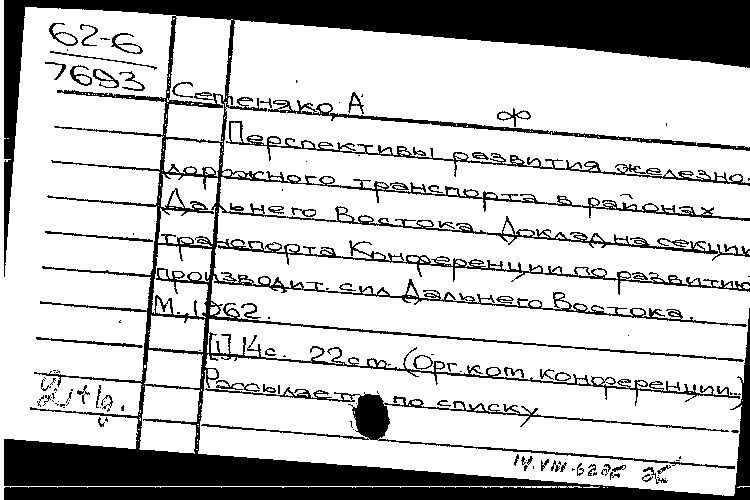 62-6
7693
Сетеняко, А
ф
Перспективы развития железно-
дорожного транспорта в районах
Дальнего Востока. Доклад на секции
транспорта Конференции по развитию
производит. сил Дальнего Востока.
М., 1962.
[1], 14с. 22cm. (Орг. ком. конференции.)
Рассылается по списку
IV.VIII-62